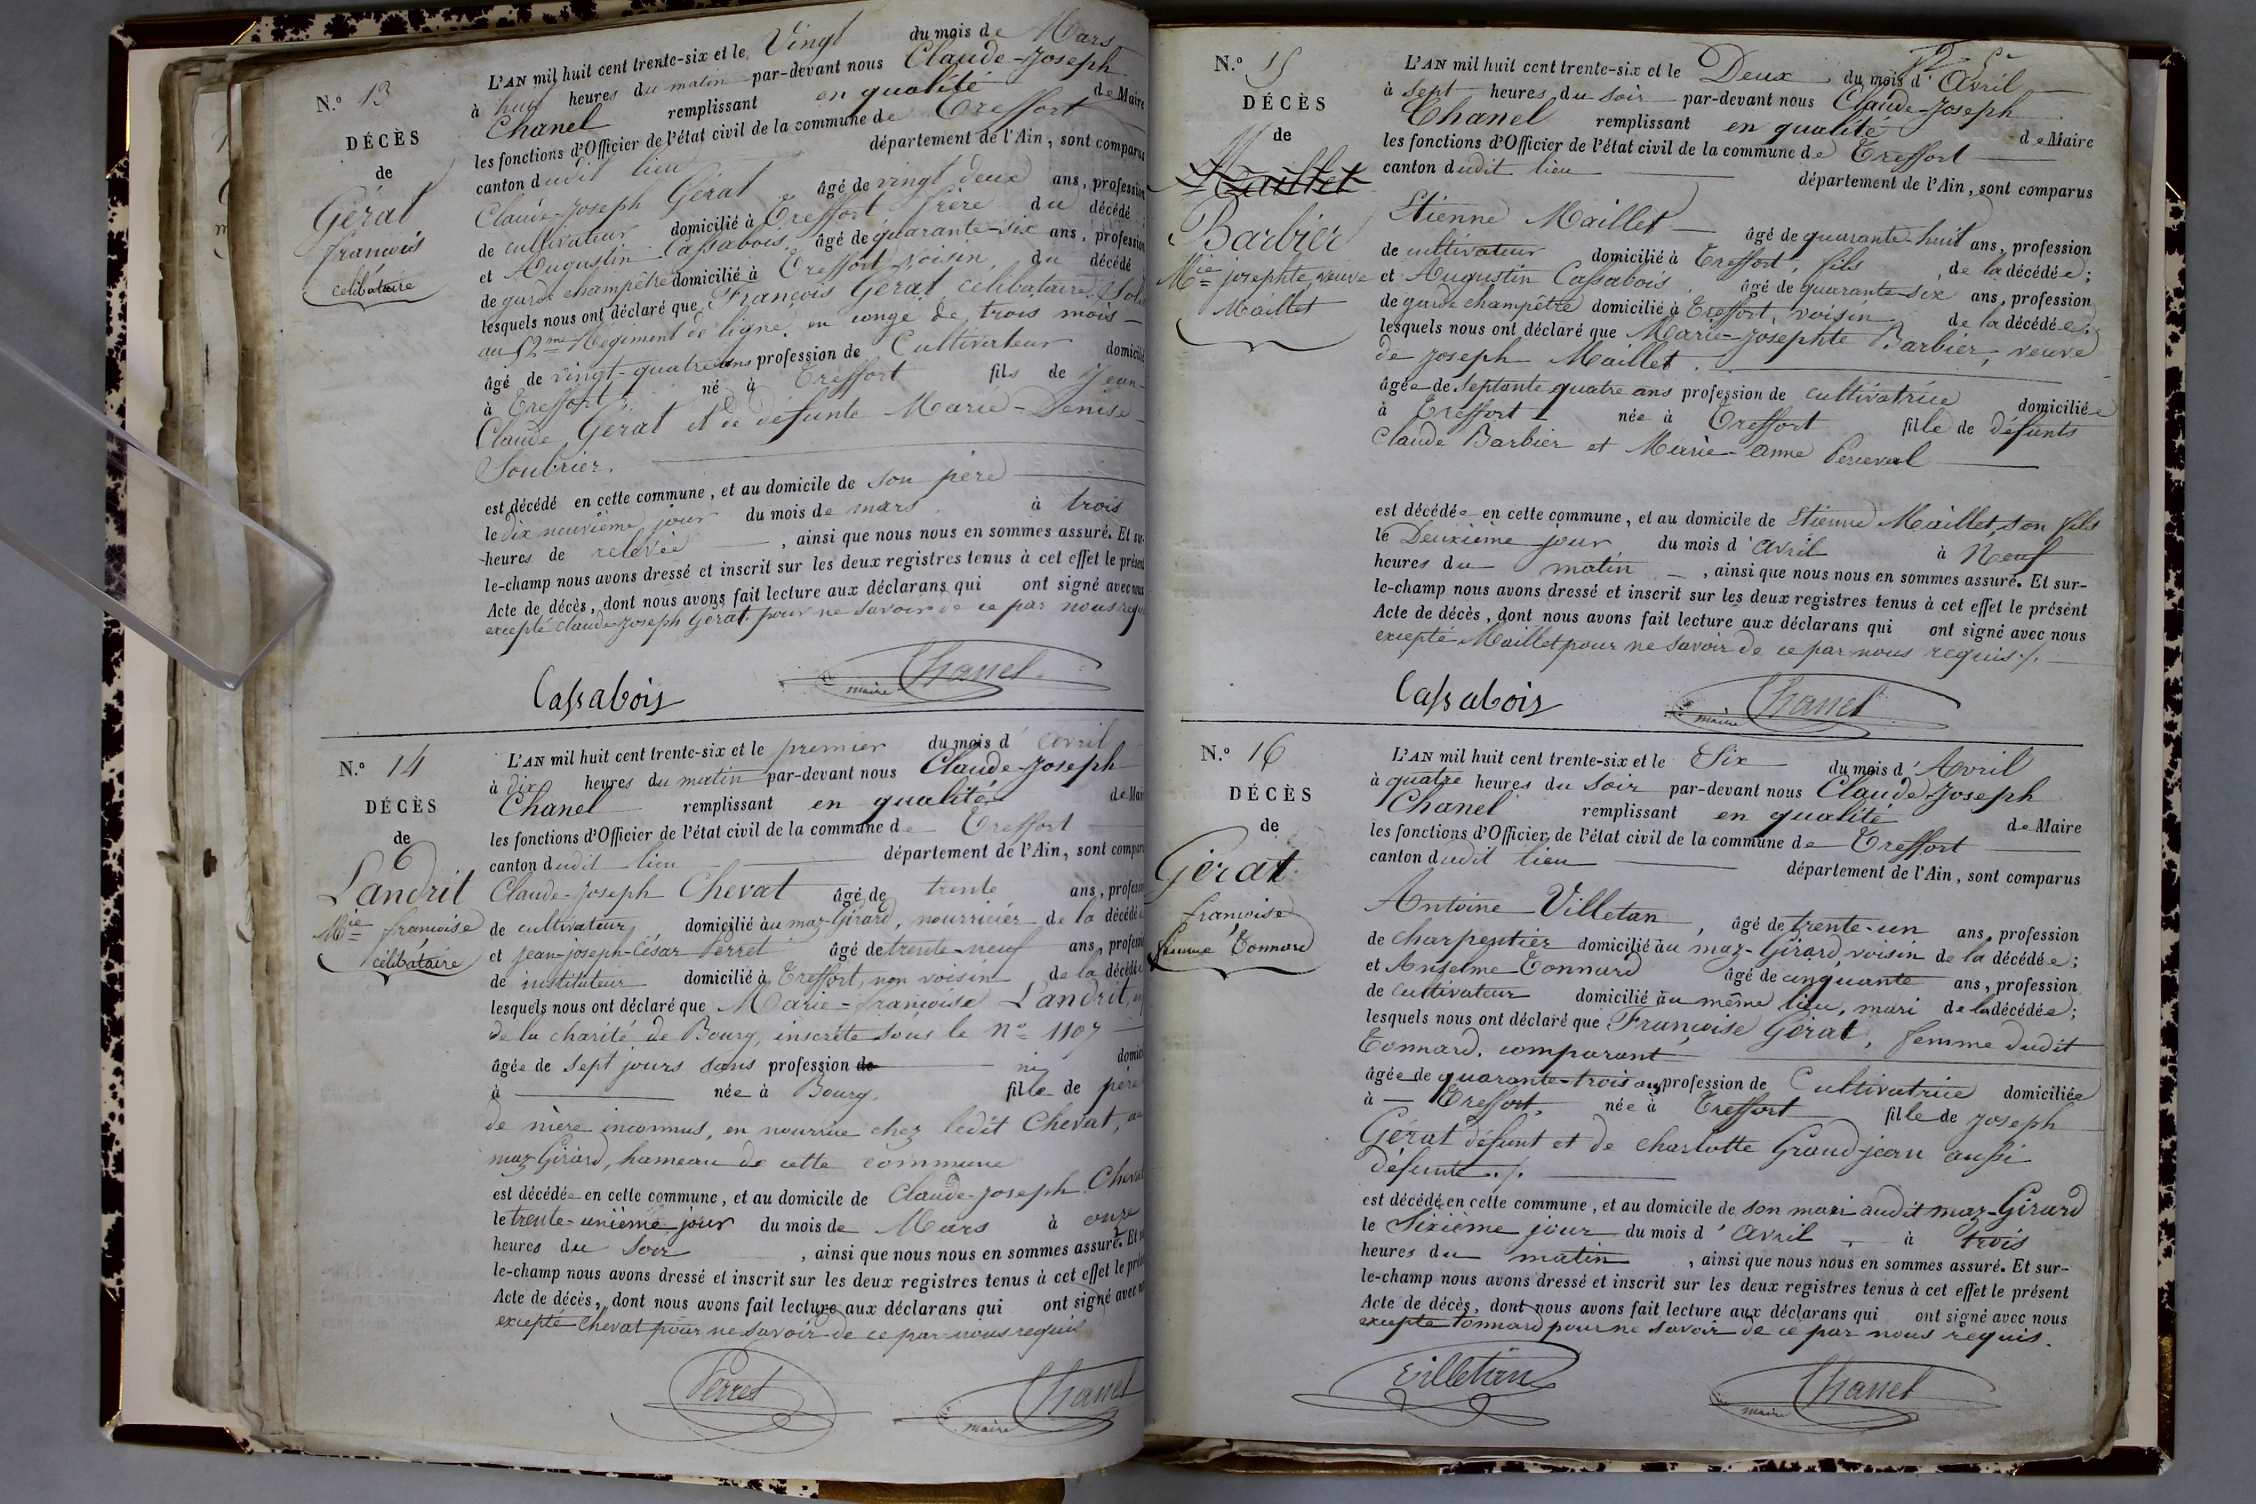 N.º 13
DÉCÈS
de
Gérat
françois
célibataire
L'AN mil huit cent trente-six et le Vingt du mois de Mars
à huit heures du matin par-devant nous Claude-Joseph
Chanel remplissant en qualité de Maire
les fonctions d'Officier de l'état civil de la commune de Treffort
canton dudit lieu département de l'Ain, sont comparus
Claude-Joseph Gérat âgé de vingt deux ans, profession
de cultivateur domicilié à Treffort frère du décédé;
et Augustin Cassabois âgé de quarante-six ans, profession
de garde champêtre domicilié à Treffort voisin du décédé
lesquels nous ont déclaré que François Gérat célibataire,
au 52me Régiment de ligne, en congé de trois mois
âgé de vingt-quatre ans profession de Cultivateur domicilié
à Treffort né à Treffort fils de Jean-
Claude Gérat et de défunte Marie-Denise
Soubrier.
est décédé en cette commune, et au domicile de son père
le dix neuvième jour du mois de mars à trois
heures de relevée, ainsi que nous nous en sommes assuré. Et sur-
le-champ nous avons dressé et inscrit sur les deux registres tenus à cet effet le présent
Acte de décès, dont nous avons fait lecture aux déclarans qui ont signé avec nous
excepté Claude-Joseph Gérat pour ne savoir de ce par nous requis
Cassabois
Chanel
maire
N.º 14
DÉCÈS
de
Landrit
Mie françoise
célibataire
L'AN mil huit cent trente-six et le premier du mois d'avril
à dix heures du matin par-devant nous Claude-Joseph
Chanel remplissant en qualité de Maire
les fonctions d'Officier de l'état civil de la commune de Treffort
canton dudit lieu département de l'Ain, sont comparus
Claude-Joseph Chevat âgé de trente ans, profession
de cultivateur, domicilié au maz-Girard, nourricier de la décédée
et jean-joseph-César Perret âgé de trente-neuf ans, profession
de instituteur domicilié à Treffort, non voisin de la décédée
lesquels nous ont déclaré que Marie-françoise Landrit,
de la charité de Bourg, inscrite sous le Nº 1107
âgée de sept jours sans profession de ni domiciliée
à née à Bourg, fille de père
de mère inconnus, en nourrice chez ledit Chevat, au
maz-Girard, hameau de cette commune
est décédée en cette commune, et au domicile de Claude-Joseph Chevat
le trente-unième jour du mois de Mars à onze
heures du soir, ainsi que nous nous en sommes assuré. Et sur-
le-champ nous avons dressé et inscrit sur les deux registres tenus à cet effet le présent
Acte de décès, dont nous avons fait lecture aux déclarans qui ont signé avec nous
excepté Chevat pour ne savoir de ce par nous requis
Perret
Chanel
maire
N.º 15
DÉCÈS
de
Maillet
Barbier
Mie josephte veuve
Maillet
L'AN mil huit cent trente-six et le Deux du mois d'Avril
à sept heures du soir par-devant nous Claude-Joseph
Chanel remplissant en qualité de Maire
les fonctions d'Officier de l'état civil de la commune de Treffort
canton dudit lieu département de l'Ain, sont comparus
Etienne Maillet âgé de quarante-huit ans, profession
de cultivateur domicilié à Treffort, fils de la décédée;
et Augustin Cassabois âgé de quarante-six ans, profession
de garde champêtre domicilié à Treffort, voisin de la décédée;
lesquels nous ont déclaré que Marie-Josephte Barbier, veuve
de Joseph Maillet.
âgée de septante quatre ans profession de cultivatrice domiciliée
à Treffort née à Treffort fille de défunts
Claude Barbier et Marie-Anne Perceval
est décédée en cette commune, et au domicile de Etienne Maillet, son fils
le Deuxième jour du mois d'avril à Neuf
heures du matin, ainsi que nous nous en sommes assuré. Et sur-
le-champ nous avons dressé et inscrit sur les deux registres tenus à cet effet le présent
Acte de décès, dont nous avons fait lecture aux déclarans qui ont signé avec nous
excepté Maillet pour ne savoir de ce par nous requis ./.
Cassabois
Chanel
maire
N.º 16
DÉCÈS
de
Gérat
françoise
femme Tonnard
L'AN mil huit cent trente-six et le Six du mois d'Avril
à quatre heures du soir par-devant nous Claude-Joseph
Chanel remplissant en qualité de Maire
les fonctions d'Officier de l'état civil de la commune de Treffort
canton dudit lieu département de l'Ain, sont comparus
Antoine Villetan, âgé de trente-un ans, profession
de charpentier domicilié au maz-Girard, voisin de la décédée;
et Anselme Tonnard âgé de cinquante ans, profession
de cultivateur domicilié au même lieu, mari de la décédée;
lesquels nous ont déclaré que Françoise Gérat, femme dudit
Tonnard, comparant
âgée de quarante-trois ans profession de Cultivatrice domiciliée
à Treffort, née à Treffort fille de Joseph
Gérat défunt et de charlotte Grandjean aussi
défunte ./.
est décédé en cette commune, et au domicile de son mari audit maz-Girard
le Sixième jour du mois d'avril, à trois
heures du matin, ainsi que nous nous en sommes assuré. Et sur-
le-champ nous avons dressé et inscrit sur les deux registres tenus à cet effet le présent
Acte de décès, dont nous avons fait lecture aux déclarans qui ont signé avec nous
excepté Tonnard pour ne savoir de ce par nous requis.
Villetan
Chanel
maire